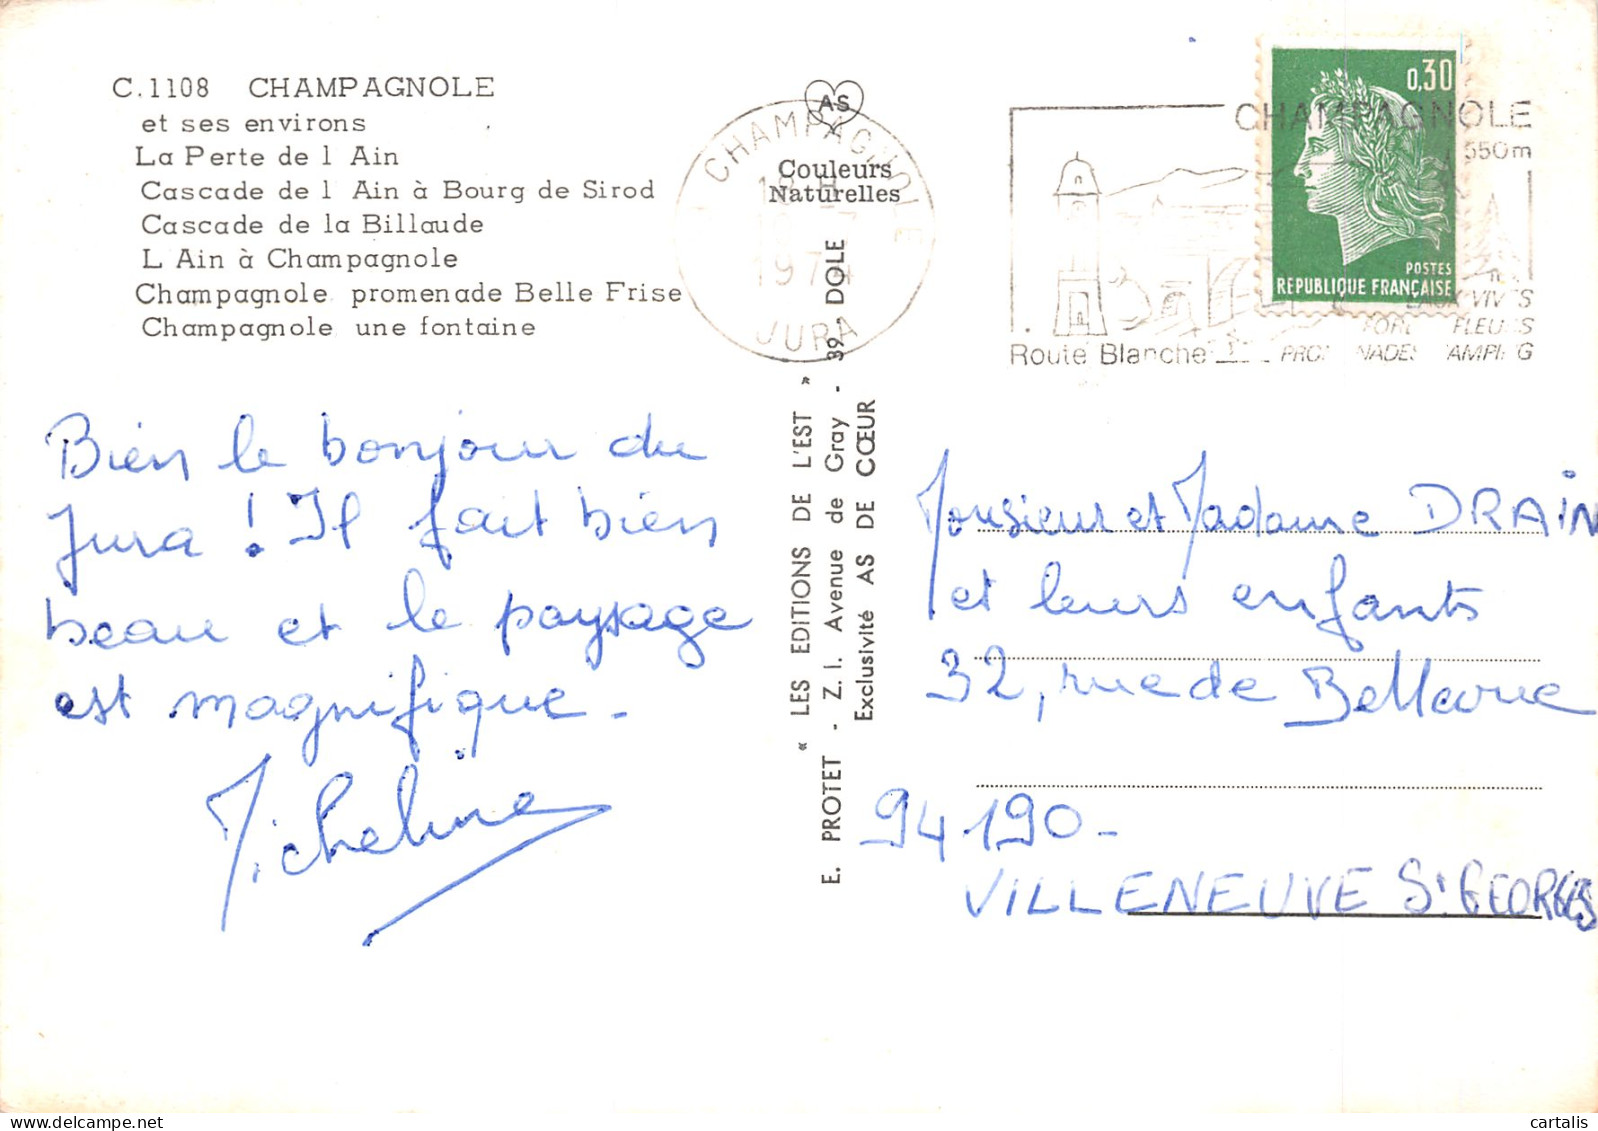 C.1108 CHAMPAGNOLE
et ses environs
La Perte de l Ain
Cascade de l Ain à Bourg de Sirod
Cascade de la Billaude
L Ain à Champagnole
Champagnole promenade Belle Frise
Champagnole une fontaine
Bien le bonjour du
Jura ! Il fait bien
beau et le paysage
est magnifique -
Micheline
AS
Couleurs
Naturelles
CHAMPAGNOLE
18 H
1974
JURA
« LES EDITIONS DE L'EST »
E. PROTET - Z. I. Avenue de Gray - 39 - DOLE
Exclusivité AS DE CŒUR
CHAMPAGNOLE
550m
Route Blanche
0,30
POSTES
REPUBLIQUE FRANÇAISE
Monsieur et Madame DRAIN
et leurs enfants
32, rue de Bellevue
94190 -
VILLENEUVE St GEORGES
cartalis